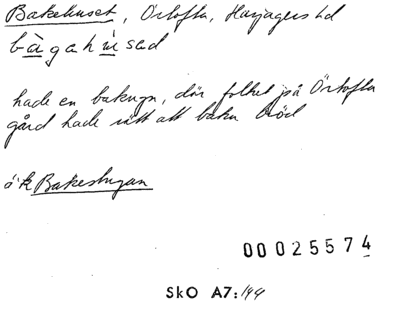 Bakehuset, Örtofta, Harjagers hd
bàgahùsəd
hade en bakugn, där folket på Örtofta
gård hade rätt att baka bröd
ä k Bakestugan
00025574
SkO A7:144